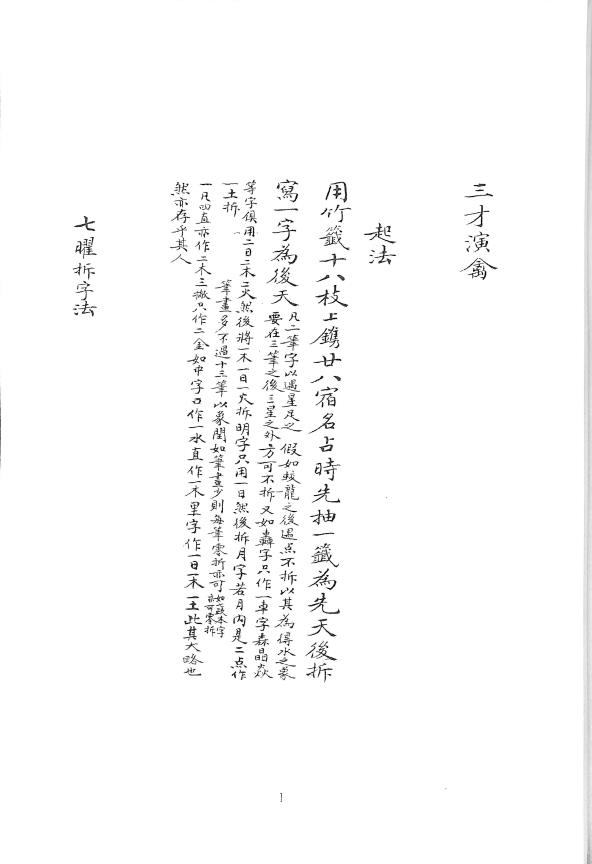 三才演禽
起法
用竹籤十八枝上鐫廿八宿名占時先抽一籤為先天後拆
寫一字為後天凡二筆字以遇星足之 假如蛟龍之後遇点不拆以其為得水之象
要在三筆之後三星之外方可不拆又如轟字只作一車字森晶焱
等字俱用二日二木二火然後將一木一日一火拆明字只用一日然後拆月字若月內是二点作
一土拆 筆畫多不過十三筆以象閏如筆畫少則每筆零拆亦可如森本字亦可零拆
一凡四直亦作二木三撇只作二金如中字口作一水直作一木里字作一日一木一土此其大略也
然亦存乎其人
七曜拆字法
1